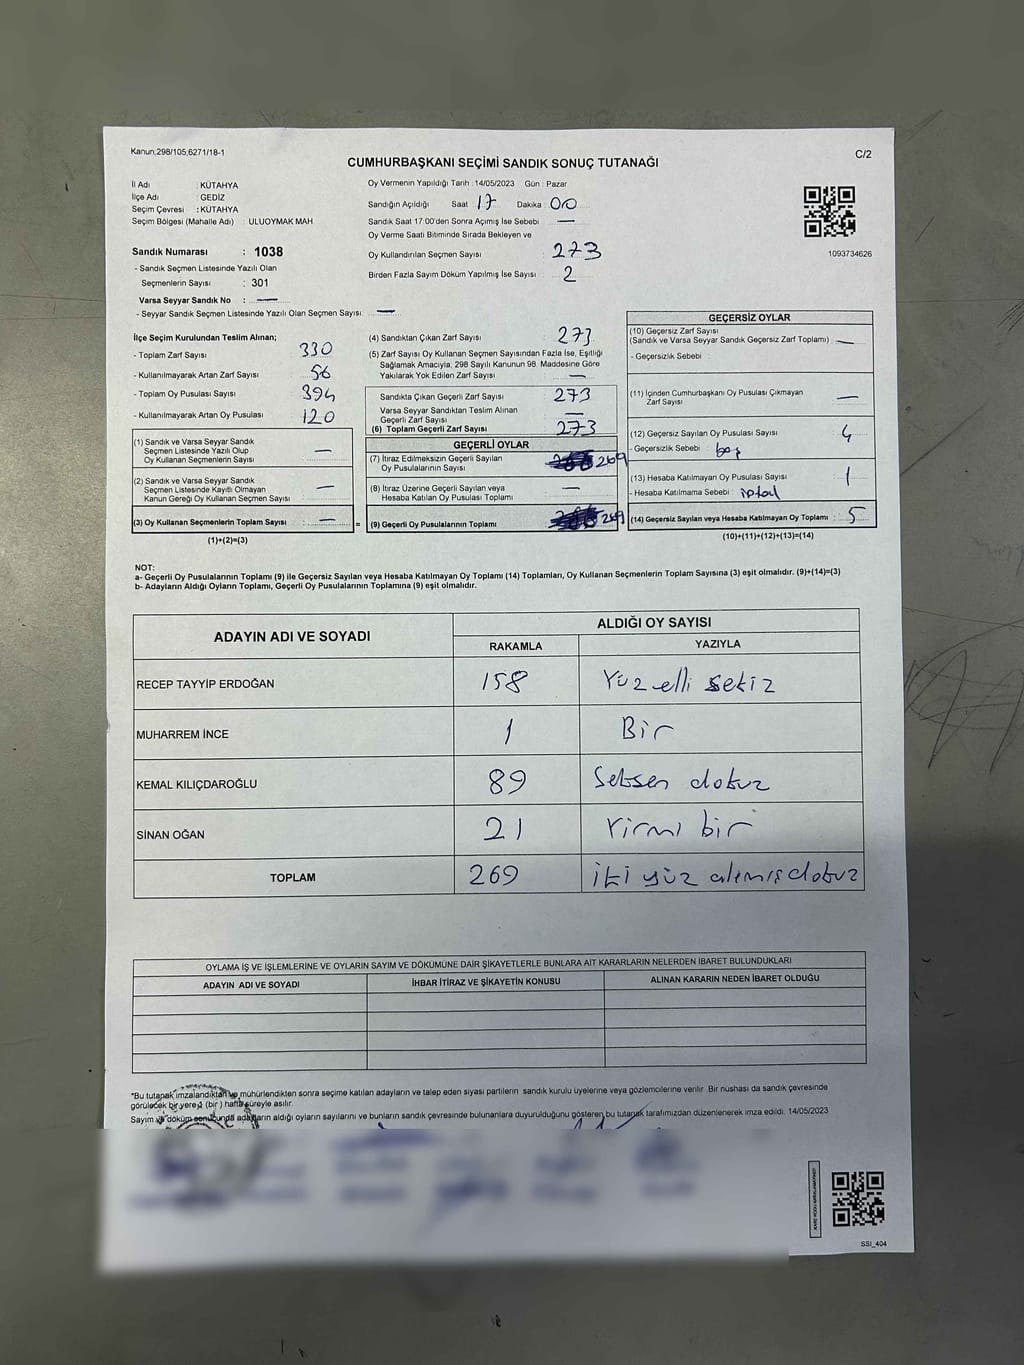 Kanun,298/105,6271/18-1
C/2
CUMHURBAŞKANI SEÇİMİ SANDIK SONUÇ TUTANAĞI
İl Adı : KÜTAHYA
İlçe Adı : GEDİZ
Seçim Çevresi : KÜTAHYA
Seçim Bölgesi (Mahalle Adı) : ULUOYMAK MAH
Sandık Numarası : 1038
- Sandık Seçmen Listesinde Yazılı Olan
Seçmenlerin Sayısı : 301
Varsa Seyyar Sandık No : —
- Seyyar Sandık Seçmen Listesinde Yazılı Olan Seçmen Sayısı: —
Oy Vermenin Yapıldığı Tarih :14/05/2023 Gün : Pazar
Sandığın Açıldığı Saat 17 Dakika 00
Sandık Saat 17:00'den Sonra Açımış İse Sebebi : —
Oy Verme Saati Bitiminde Sırada Bekleyen ve
Oy Kullandırılan Seçmen Sayısı : 273
Birden Fazla Sayım Döküm Yapılmış İse Sayısı : 2
1093734626
İlçe Seçim Kurulundan Teslim Alınan;
- Toplam Zarf Sayısı : 330
- Kullanılmayarak Artan Zarf Sayısı : 56
- Toplam Oy Pusulası Sayısı : 394
- Kullanılmayarak Artan Oy Pusulası : 120
(1) Sandık ve Varsa Seyyar Sandık
Seçmen Listesinde Yazılı Olup
Oy Kullanan Seçmenlerin Sayısı : —
(2) Sandık ve Varsa Seyyar Sandık
Seçmen Listesinde Kayıtlı Olmayan
Kanun Gereği Oy Kullanan Seçmen Sayısı : —
(3) Oy Kullanan Seçmenlerin Toplam Sayısı : — =
(1)+(2)=(3)
(4) Sandıktan Çıkan Zarf Sayısı : 273
(5) Zarf Sayısı Oy Kullanan Seçmen Sayısından Fazla İse, Eşitliği
Sağlamak Amacıyla, 298 Sayılı Kanunun 98. Maddesine Göre
Yakılarak Yok Edilen Zarf Sayısı : —
Sandıkta Çıkan Geçerli Zarf Sayısı : 273
Varsa Seyyar Sandıktan Teslim Alınan
Geçerli Zarf Sayısı : —
(6) Toplam Geçerli Zarf Sayısı : 273
GEÇERLİ OYLAR
(7) İtiraz Edilmeksizin Geçerli Sayılan
Oy Pusulalarının Sayısı : 269
(8) İtiraz Üzerine Geçerli Sayılan veya
Hesaba Katılan Oy Pusulası Toplamı : —
(9) Geçerli Oy Pusulalarının Toplamı : 269
GEÇERSİZ OYLAR
(10) Geçersiz Zarf Sayısı
(Sandık ve Varsa Seyyar Sandık Geçersiz Zarf Toplamı) : —
- Geçersizlik Sebebi :
(11) İçinden Cumhurbaşkanı Oy Pusulası Çıkmayan
Zarf Sayısı : —
(12) Geçersiz Sayılan Oy Pusulası Sayısı : 4
- Geçersizlik Sebebi : boş
(13) Hesaba Katılmayan Oy Pusulası Sayısı : 1
- Hesaba Katılmama Sebebi : iptal
(14) Geçersiz Sayılan veya Hesaba Katılmayan Oy Toplamı : 5
(10)+(11)+(12)+(13)=(14)
NOT:
a- Geçerli Oy Pusulalarının Toplamı (9) ile Geçersiz Sayılan veya Hesaba Katılmayan Oy Toplamı (14) Toplamları, Oy Kullanan Seçmenlerin Toplam Sayısına (3) eşit olmalıdır. (9)+(14)=(3)
b- Adayların Aldığı Oyların Toplamı, Geçerli Oy Pusulalarının Toplamına (9) eşit olmalıdır.
ADAYIN ADI VE SOYADI ALDIĞI OY SAYISI
RAKAMLA YAZIYLA
RECEP TAYYİP ERDOĞAN 158 Yüz elli sekiz
MUHARREM İNCE 1 Bir
KEMAL KILIÇDAROĞLU 89 Seksen dokuz
SİNAN OĞAN 21 Yirmi bir
TOPLAM 269 iki yüz altmış dokuz
OYLAMA İŞ VE İŞLEMLERİNE VE OYLARIN SAYIM VE DÖKÜMÜNE DAİR ŞİKAYETLERLE BUNLARA AİT KARARLARIN NELERDEN İBARET BULUNDUKLARI
ADAYIN ADI VE SOYADI İHBAR İTİRAZ VE ŞİKAYETİN KONUSU ALINAN KARARIN NEDEN İBARET OLDUĞU
*Bu tutanak imzalandıktan ve mühürlendikten sonra seçime katılan adayların ve talep eden siyasi partilerin sandık kurulu üyelerine veya gözlemcilerine verilir. Bir nüshası da sandık çevresinde
görülecek bir yere 1 (bir) hafta süreyle asılır.
Sayım ve döküm sonucunda adayların aldığı oyların sayılarını ve bunların sandık çevresinde bulunanlara duyurulduğunu gösteren bu tutanak tarafımızdan düzenlenerek imza edildi. 14/05/2023
SSI_404